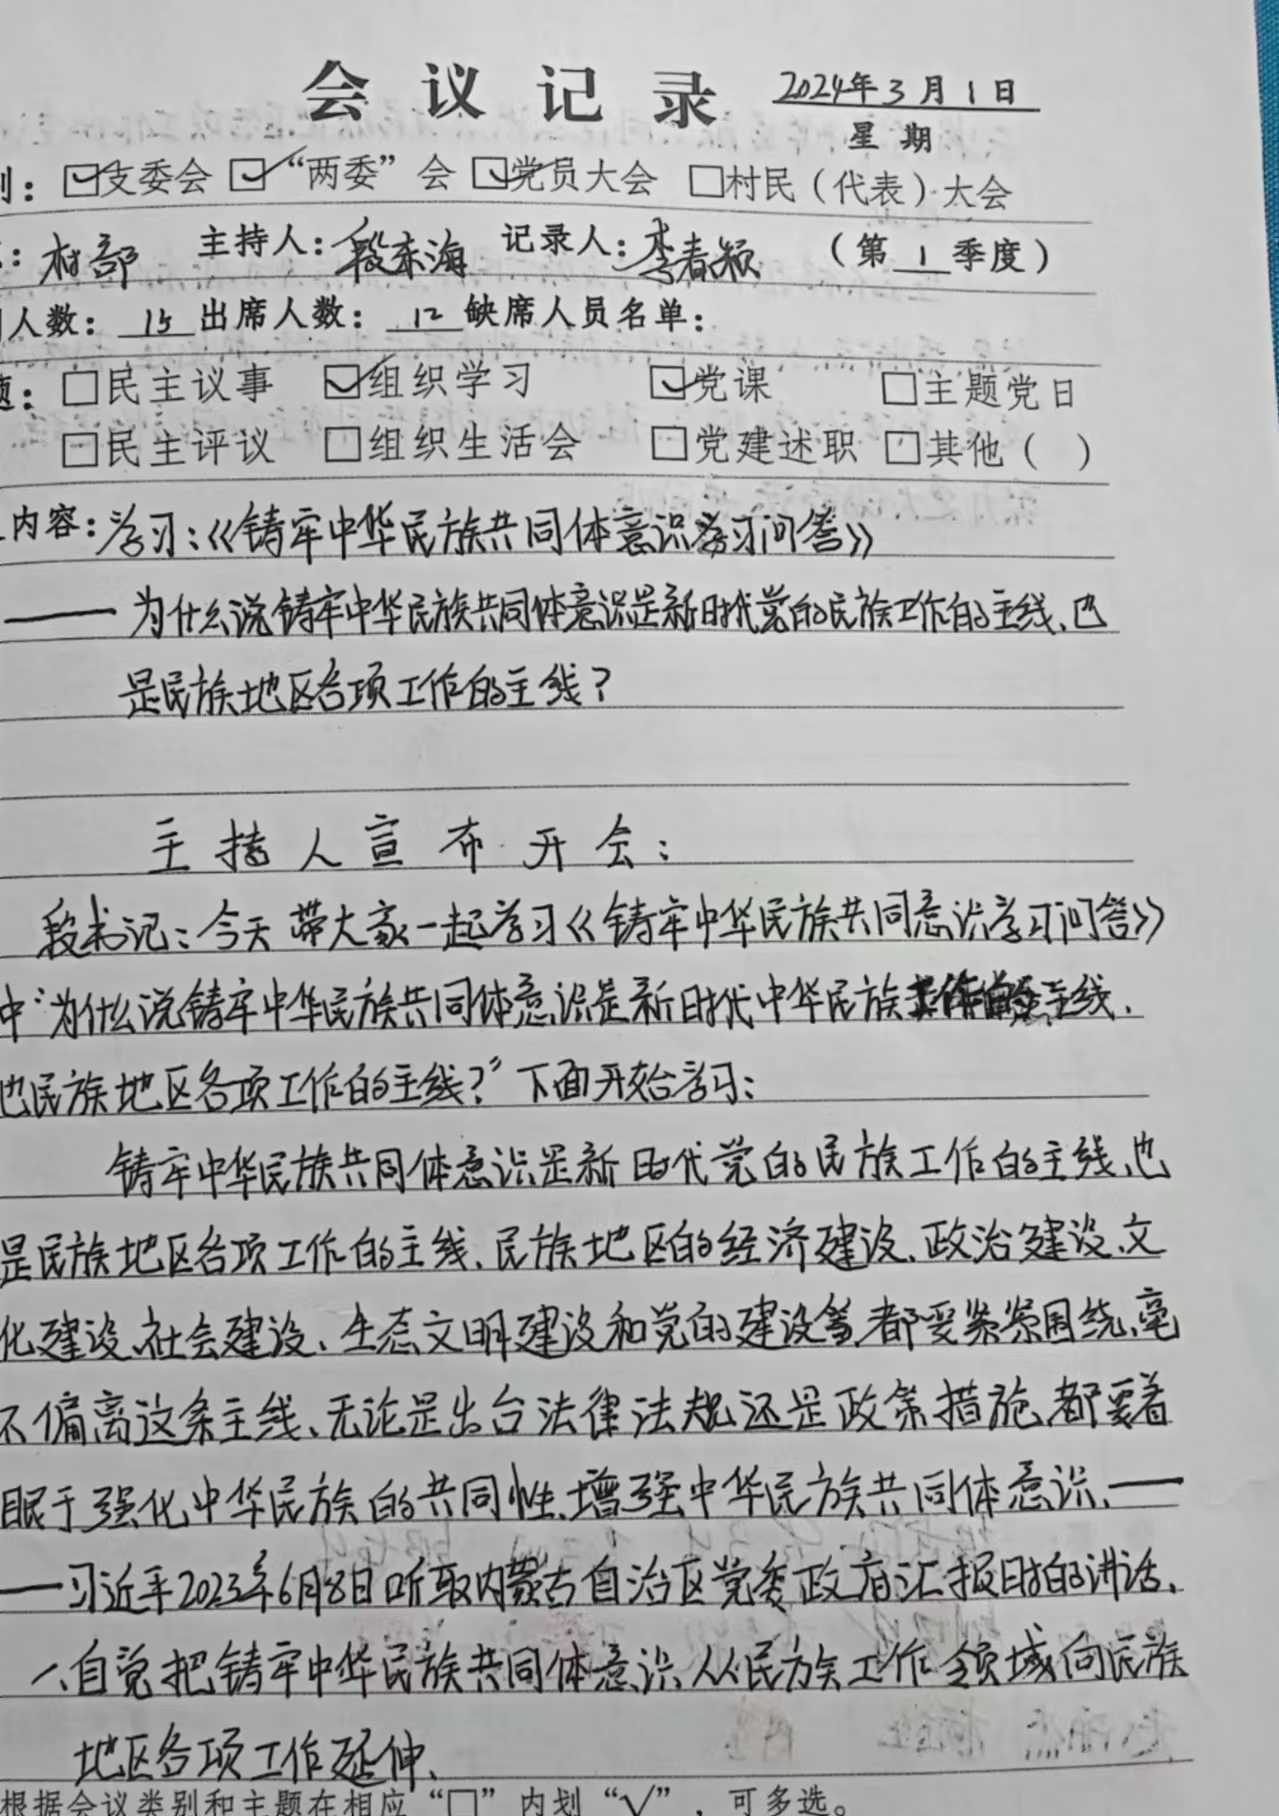 会议记录 2024年3月1日
星期
别: ☑支委会 ☑“两委”会 ☑党员大会 □村民（代表）大会
: 村部 主持人: 段东海 记录人: 李春颖 （第 1 季度）
人数: 15 出席人数: 12 缺席人员名单:
题: □民主议事 ☑组织学习 ☑党课 □主题党日
□民主评议 □组织生活会 □党建述职 □其他（ ）
内容: 学习:《铸牢中华民族共同体意识学习问答》
——为什么说铸牢中华民族共同体意识是新时代党的民族工作的主线、也
是民族地区各项工作的主线?
主持人宣布开会:
段书记: 今天带大家一起学习《铸牢中华民族共同意识学习问答》
中“为什么说铸牢中华民族共同体意识是新时代中华民族工作的主线、
也民族地区各项工作的主线?”下面开始学习:
铸牢中华民族共同体意识是新时代党的民族工作的主线、也
是民族地区各项工作的主线、民族地区的经济建设、政治建设、文
化建设、社会建设、生态文明建设和党的建设等、都要紧紧围绕、毫
不偏离这条主线、无论是出台法律法规还是政策措施、都要着
眼于强化中华民族的共同性、增强中华民族共同体意识、—
—习近平2023年6月8日听取内蒙古自治区党委政府汇报时的讲话、
一、自觉把铸牢中华民族共同体意识从民族工作领域向民族
地区各项工作延伸、
根据会议类别和主题在相应“□”内划“√”，可多选。